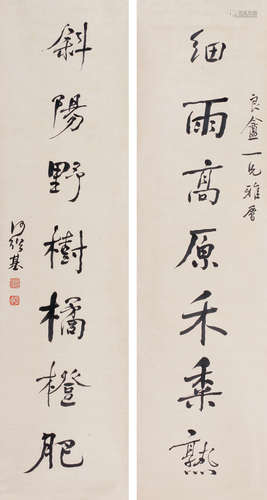 良盦一兄雅屬
細雨高原禾黍熟
斜陽野樹橘橙肥
何紹基